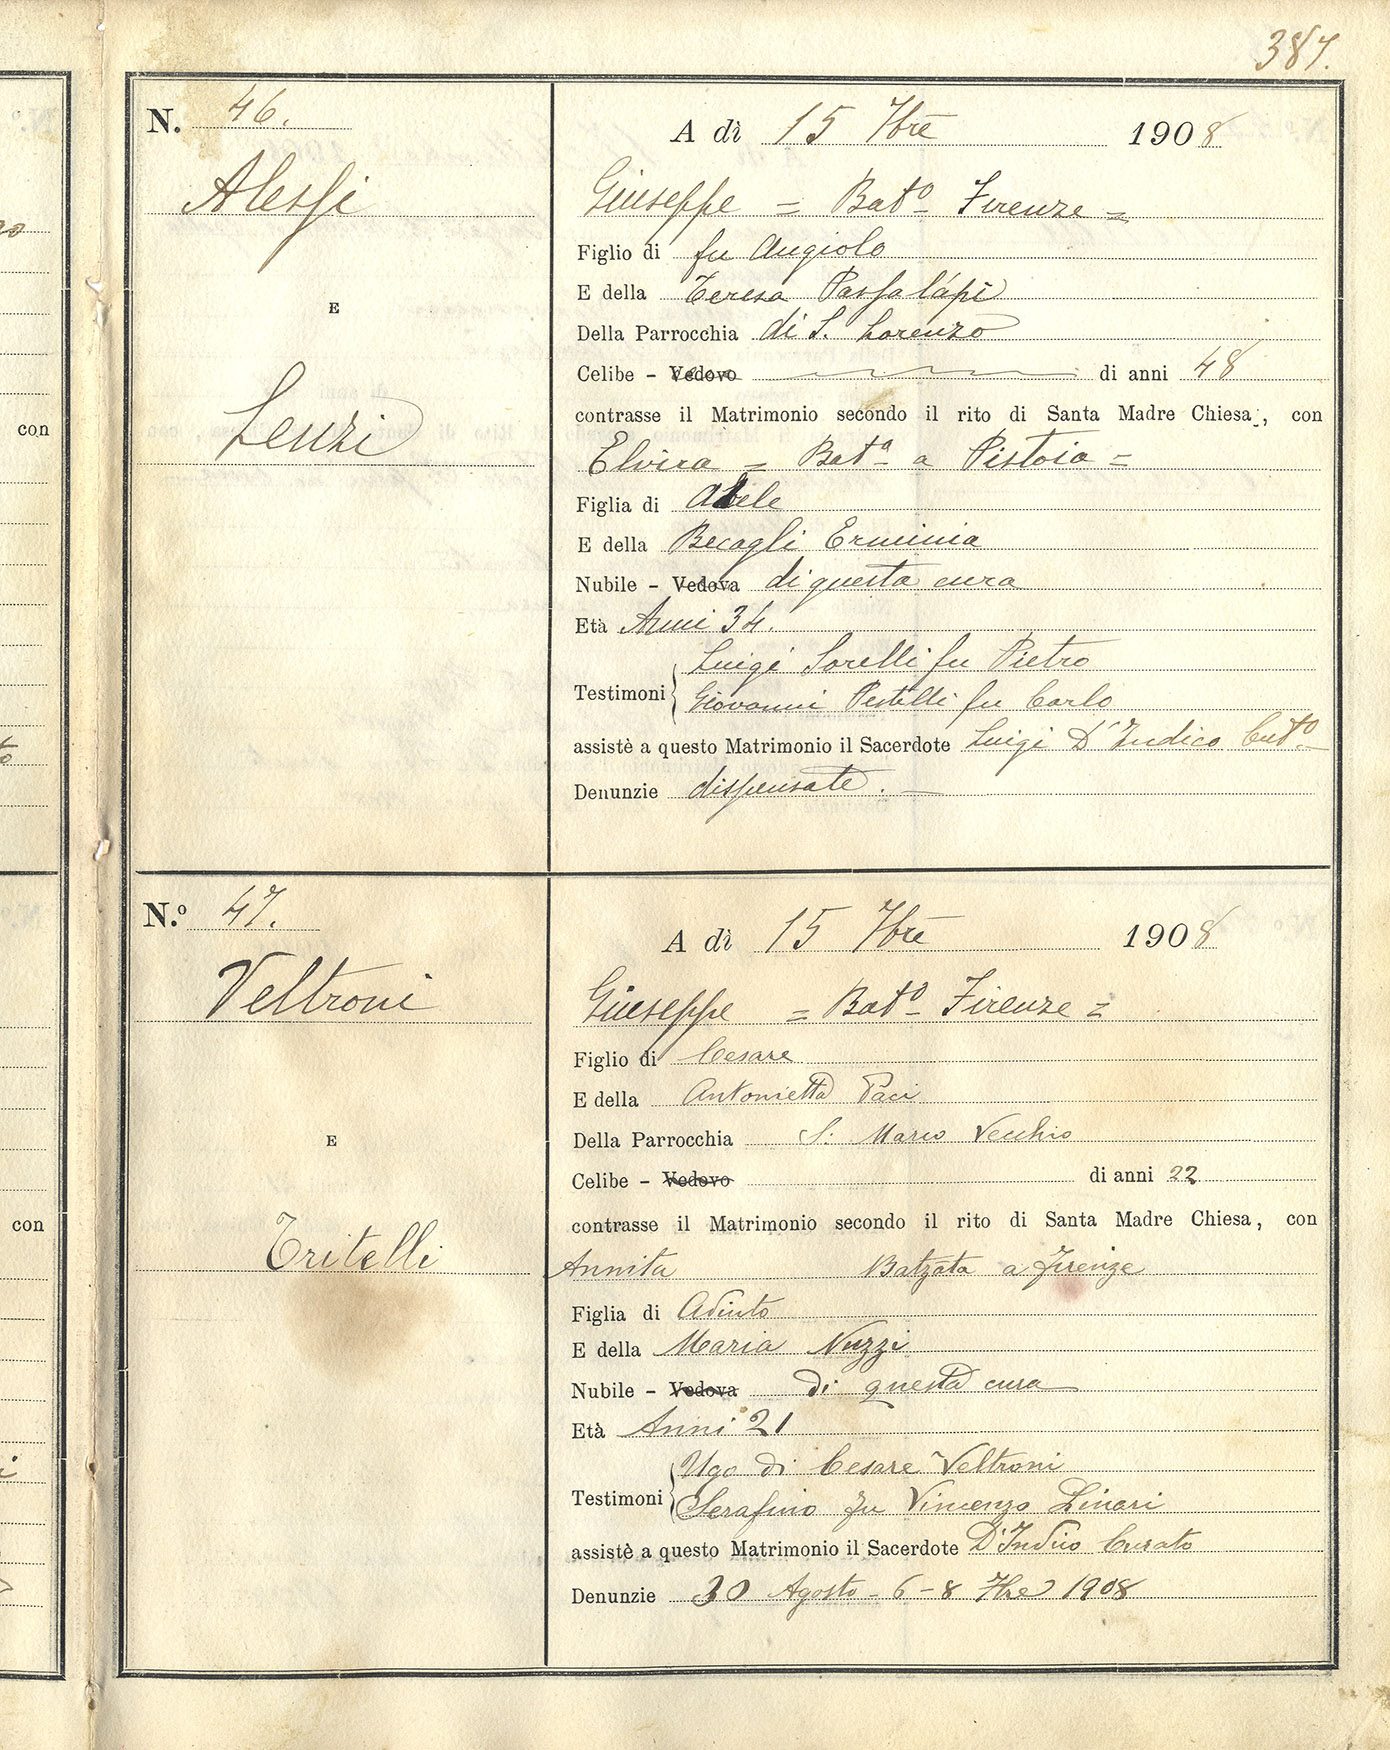 387.
N. 46.
Alessi
E
Lenzi
A dì 15 7bre 1908
Giuseppe = Bat.o Firenze =
Figlio di fu Angiolo
E della Teresa Passalapi
Della Parrocchia di S. Lorenzo
Celibe - Vedovo di anni 48
contrasse il Matrimonio secondo il rito di Santa Madre Chiesa, con
Elvira = Bat.a a Pistoia =
Figlia di Abele
E della Becagli Erminia
Nubile - Vedova di questa cura
Età Anni 34.
Luigi Sorelli fu Pietro
Testimoni
Giovanni Pestelli fu Carlo
assistè a questo Matrimonio il Sacerdote Luigi D'Indico Cut.o
Denunzie dispensate.
N.o 47.
Veltroni
E
Tritelli
A dì 15 7bre 1908
Giuseppe = Bat.o Firenze =
Figlio di Cesare
E della Antonietta Paci
Della Parrocchia S. Marco Vecchio
Celibe - Vedovo di anni 22
contrasse il Matrimonio secondo il rito di Santa Madre Chiesa, con
Annita Batzata a Firenze
Figlia di
E della Maria Nuzzi
Nubile - Vedova di questa cura
Età Anni 21
Ugo di Cesare Veltroni
Testimoni
Serafino fu Vincenzo Linari
assistè a questo Matrimonio il Sacerdote D'Indico Curato
Denunzie 30 Agosto - 6 - 8 7bre 1908
con
con